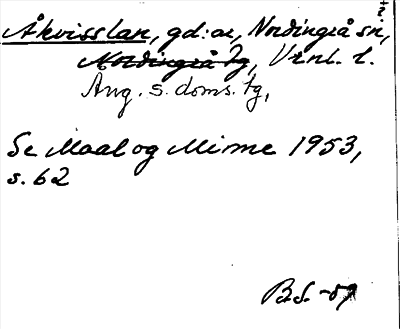 Åkvisslan, gd:ar, Nordingrå sn,
Nordingrå tg, Vrnl. l.
Ång. s. doms. tg,
Se Maal og Minne 1953,
s. 62
B.S. -59